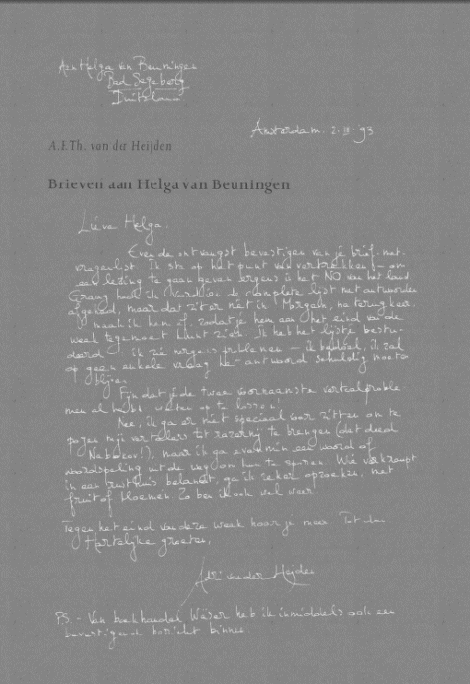 Aan Helga van Beuningen
Bad Segeberg
Duitsland
Amsterdam, 2-III-'93
A.F.Th. van der Heijden
Brieven aan Helga van Beuningen
Lieve Helga,
Even de ontvangst bevestigen van je brief met
vragenlijst. Ik sta op het punt van vertrekken om
een lezing te gaan geven ergens in het NO van het land.
Graag had ik complete lijst met antwoorden
afgerond, maar dat zit er niet in. Morgen, na terugkeer,
maak ik hem af, zodat je hem aan het eind van de
week tegemoet kunt zien. Ik heb het lijstje bestu-
deerd ik zie nergens problemen – ik bedoel, ik zal
op geen enkele vraag het antwoord schuldig moeten
blijven.
Fijn dat je de twee voornaamste vertaalproble
men al hebt weten op te lossen!
Nee, ik ga er niet speciaal voor zitten om te
pogen mijn vertalers tot razernij te brengen (dat deed
Nabokov!), maar ik ga evenmin een woord of
woordspeling uit de weg om hun te sparen. Wie
in een belandt, ga ik zeker opzoeken, met
fruit of bloemen. Zo ben ik ook wel weer.
Tegen het eind van deze week hoor je meer. Tot dan.
Hartelijke groeten,
Adri van der Heijden
P.S. – Van boekhandel heb ik inmiddels ook een
bevestigend bericht binnen.